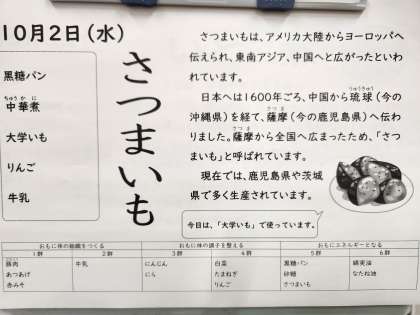 10月2日(水)
黒糖パン
ちゅうかに
中華煮
大学いも
りんご
牛乳
さつまいも
さつまいもは、アメリカ大陸からヨーロッパへ
伝えられ、東南アジア、中国へと広がったといわ
れています。
りゅうきゅう
日本へは1600年ごろ、中国から琉球(今の
さつま
沖縄県)を経て、薩摩(今の鹿児島県)へ伝わ
さつま
りました。薩摩から全国へ広まったため、「さつ
まいも」と呼ばれています。
現在では、鹿児島県や茨城
県で多く生産されています。
今日は、「大学いも」で使っています。
おもに体の組織をつくる
おもに体の調子を整える
おもにエネルギーとなる
1群 2群 3群 4群 5群 6群
豚肉 牛乳 にんじん 白菜 黒糖パン 綿実油
あつあげ にら たまねぎ 砂糖 なたね油
赤みそ りんご さつまいも